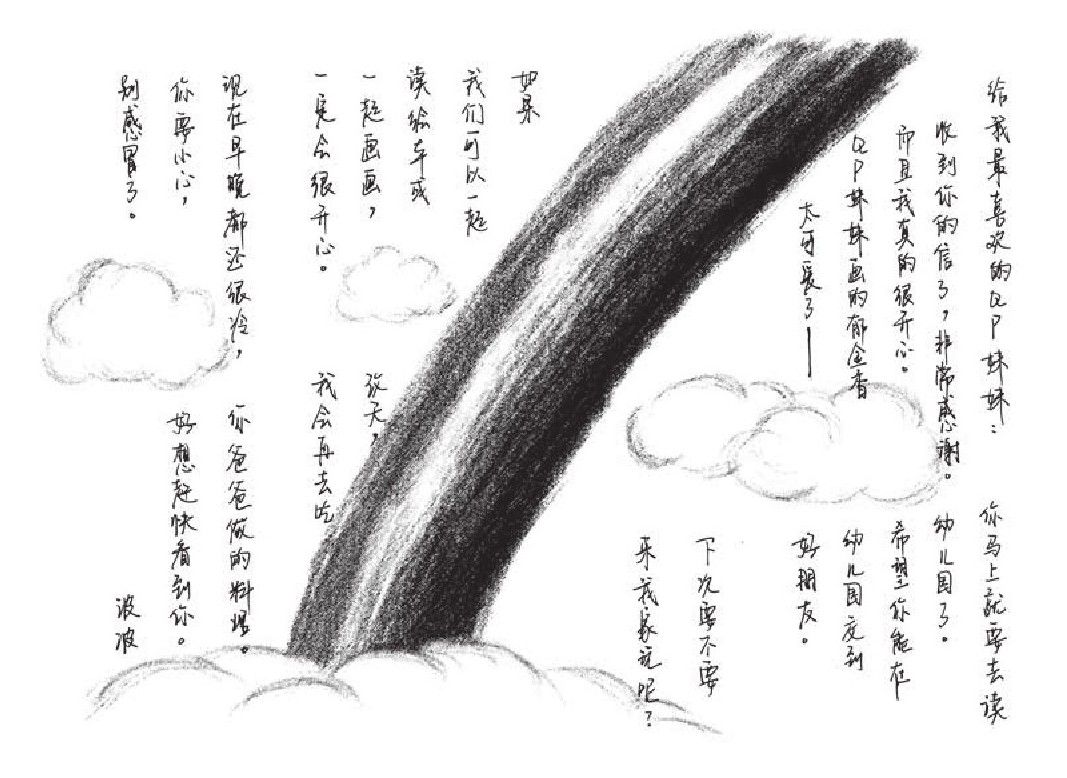 给我最喜欢的QP妹妹：
收到你的信了，非常感谢。
而且我真的很开心。
QP妹妹画的郁金香
太可爱了——
你马上就要去读
幼儿园了。
希望你能在
幼儿园交到
好朋友。
下次要不要
来我家玩呢？
如果
我们可以一起
读绘本或
一起画画，
一定会很开心。
现在早晚都还很冷，
你要小心，
别感冒了。
改天，
我会再去吃
你爸爸做的料理。
好想赶快看到你。
波波